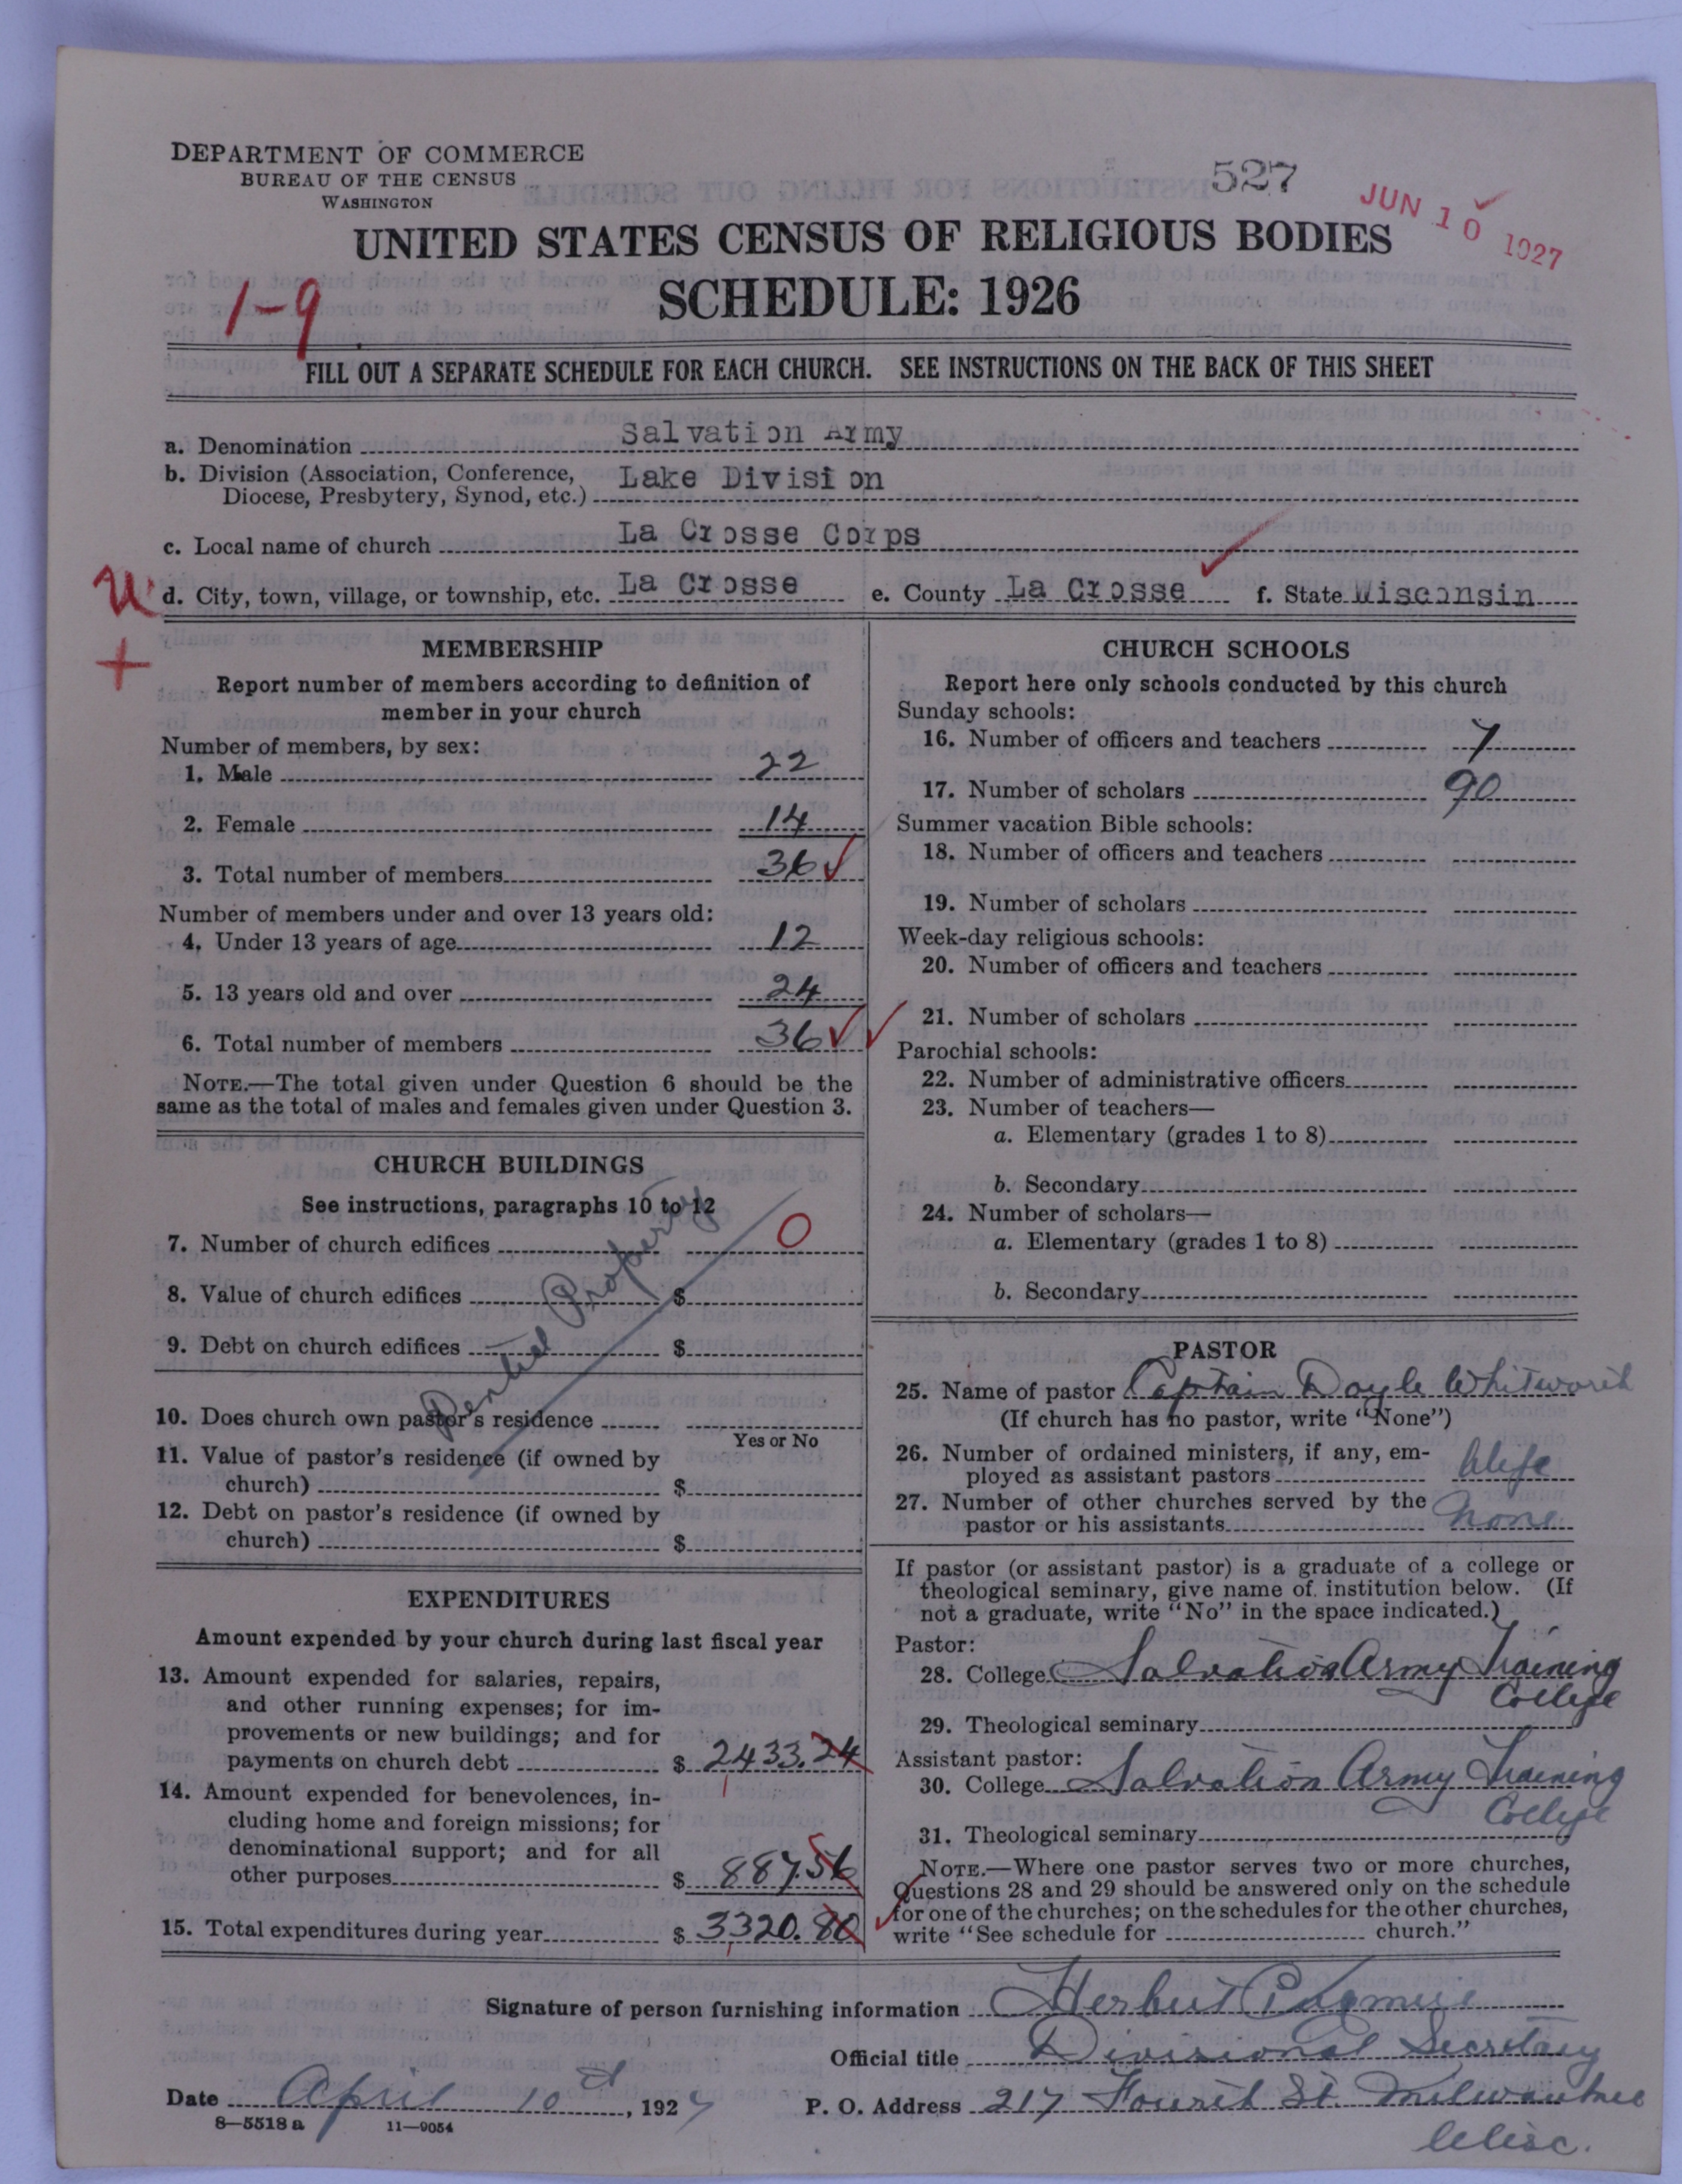 DEPARTMENT OF COMMERCE
BUREAU OF THE CENSUS
WASHINGTON
527
JUN 10 1927
UNITED STATES CENSUS OF RELIGIOUS BODIES
SCHEDULE: 1926
1-9
FILL OUT A SEPARATE SCHEDULE FOR EACH CHURCH. SEE INSTRUCTIONS ON THE BACK OF THIS SHEET
a. Denomination Salvation Army
b. Division (Association, Conference, Diocese, Presbytery, Synod, etc.) Lake Division
c. Local name of church La Crosse Corps
d. City, town, village, or township, etc. La Crosse e. County La Crosse f. State Wisconsin
MEMBERSHIP
Report number of members according to definition of
member in your church
Number of members, by sex:
1. Male 22
2. Female 14
3. Total number of members 36
Number of members under and over 13 years old:
4. Under 13 years of age 12
5. 13 years old and over 24
6. Total number of members 36
NOTE.—The total given under Question 6 should be the
same as the total of males and females given under Question 3.
CHURCH BUILDINGS
See instructions, paragraphs 10 to 12
7. Number of church edifices 0
8. Value of church edifices $
9. Debt on church edifices $
Rented Property
10. Does church own pastor's residence
Yes or No
11. Value of pastor's residence (if owned by
church) $
12. Debt on pastor's residence (if owned by
church) $
EXPENDITURES
Amount expended by your church during last fiscal year
13. Amount expended for salaries, repairs,
and other running expenses; for im-
provements or new buildings; and for
payments on church debt $ 2433.24
14. Amount expended for benevolences, in-
cluding home and foreign missions; for
denominational support; and for all
other purposes $ 887.56
15. Total expenditures during year $ 3320.80
CHURCH SCHOOLS
Report here only schools conducted by this church
Sunday schools:
16. Number of officers and teachers 7
17. Number of scholars 90
Summer vacation Bible schools:
18. Number of officers and teachers
19. Number of scholars
Week-day religious schools:
20. Number of officers and teachers
21. Number of scholars
Parochial schools:
22. Number of administrative officers
23. Number of teachers—
a. Elementary (grades 1 to 8)
b. Secondary
24. Number of scholars—
a. Elementary (grades 1 to 8)
b. Secondary
PASTOR
25. Name of pastor Captain Doyle Whitworth
(If church has no pastor, write "None")
26. Number of ordained ministers, if any, em-
ployed as assistant pastors Wife
27. Number of other churches served by the
pastor or his assistants None
If pastor (or assistant pastor) is a graduate of a college or
theological seminary, give name of institution below. (If
not a graduate, write "No" in the space indicated.)
Pastor:
28. College Salvation Army Training
College
29. Theological seminary
Assistant pastor:
30. College Salvation Army Training
College
31. Theological seminary
NOTE.—Where one pastor serves two or more churches,
Questions 28 and 29 should be answered only on the schedule
for one of the churches; on the schedules for the other churches,
write "See schedule for church."
Signature of person furnishing information Herbert
Official title Divisional Secretary
Date April 10th, 1927 P. O. Address 217 Fourth St. Milwaukee
Wisc.
8—5518 a 11—9054